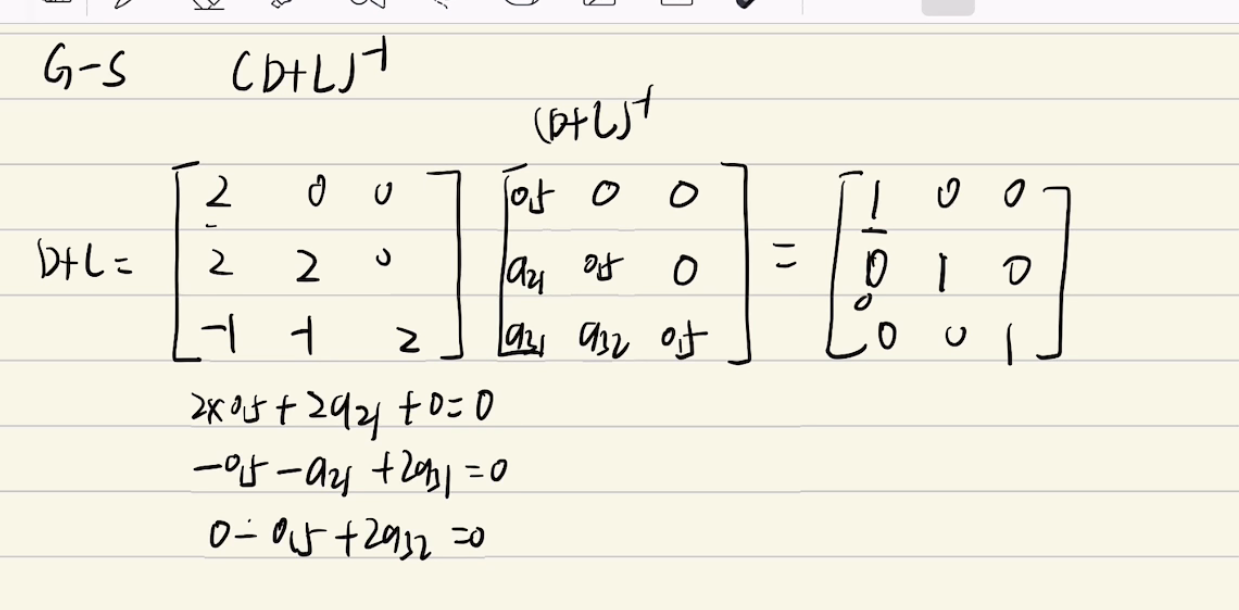 G-S (D+L)⁻¹
(D+L)⁻¹
D+L = [2 0 0; 2 2 0; -1 -1 2] [0.5 0 0; a₂₁ 0.5 0; a₃₁ a₃₂ 0.5] = [1 0 0; 0 1 0; 0 0 1]
2×0.5 + 2a₂₁ + 0 = 0
-0.5 - a₂₁ + 2a₃₁ = 0
0 - 0.5 + 2a₃₂ = 0